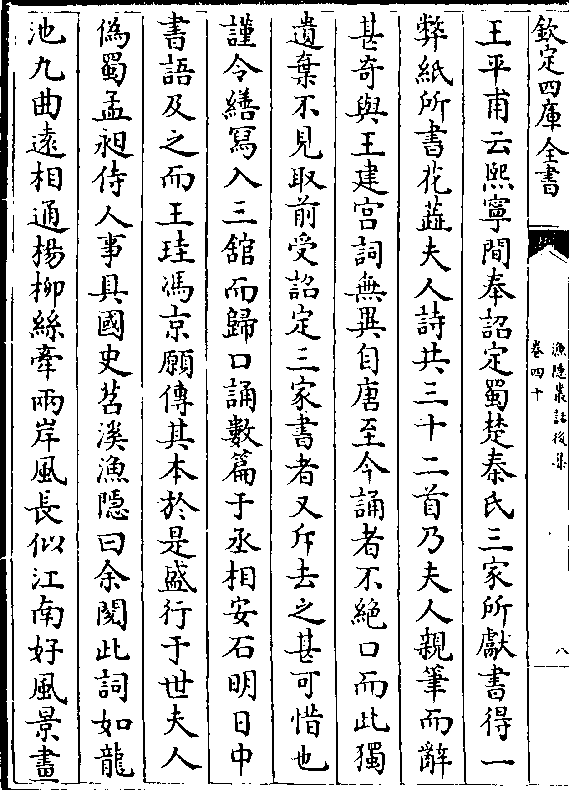 欽定四庫全書
漁隱叢話後集
卷四十
八
王平甫云熙寧間奉詔定蜀楚秦氏三家所獻書得一
弊紙所書花蘂夫人詩共三十二首乃夫人親筆而辭
甚奇與王建宮詞無異自唐至今誦者不絕口而此獨
遺棄不見取前受詔定三家書者又斥去之甚可惜也
謹令繕寫入三舘而歸口誦數篇于丞相安石明日中
書語及之而王珪馮京願傳其本於是盛行于世夫人
偽蜀孟昶侍人事具國史苕溪漁隱曰余閱此詞如龍
池九曲遠相通楊柳絲牽兩岸風長似江南好風景畫